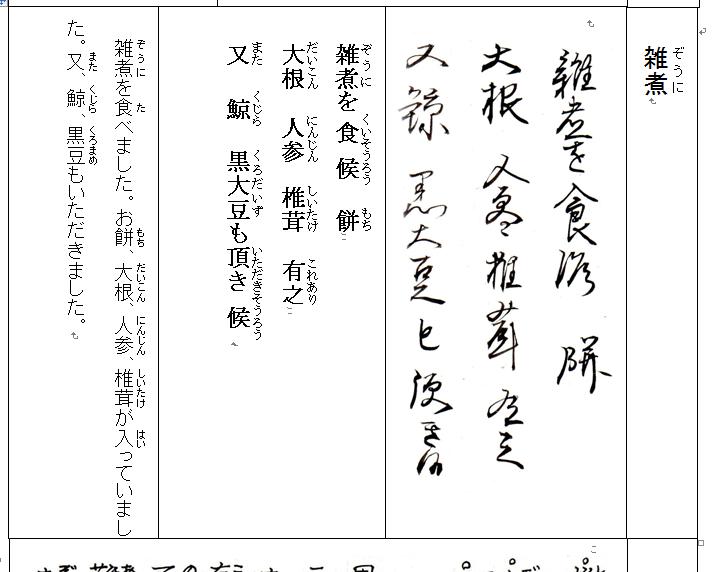 雑煮
雑煮を食候 餅
大根 人参 椎茸 有之
又 鯨 黒大豆も頂き候
雑煮を食候 餅
大根 人参 椎茸 有之
又 鯨 黒大豆も頂き候
雑煮を食べました。お餅、大根、人参、椎茸が入っていまし
た。又、鯨、黒豆もいただきました。